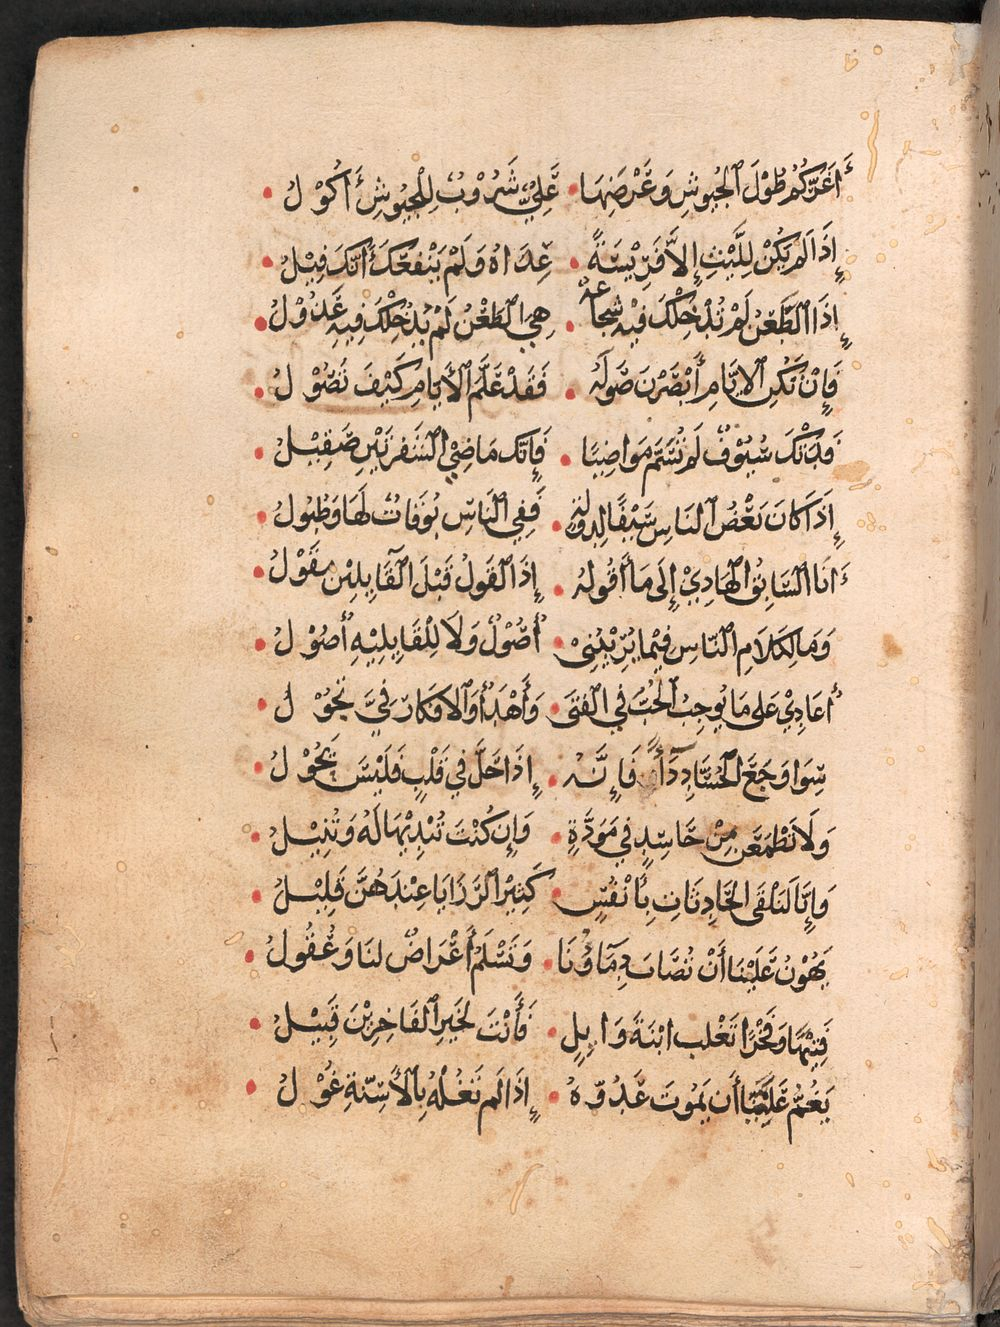 أَغَرَّكُمْ طُوْلَ الْجُيُوشِ وَعَرْضِهَا • عَلِيٌّ شَرُوْبٌ لِلْجُيُوشِ أَكُوْلُ •
إِذَا لَمْ يَكُنْ لِلَّيْثِ إِلَّا فَرِيْسَةً • عِدَاهُ وَلَمْ يَنْفَعْكَ أَنَّكَ فِيْلُ •
إِذَا الطَّعْنُ لَمْ تُدْخِلْكَ فِيْهِ شِجَاعَةٌ • هِيَ الطَّعْنُ لَمْ يُدْخِلْكَ فِيهِ عَذُوْلُ •
فَإِنْ تَكُنِ الْايَّامِ أَبْصَرْنَ صَوْلَهُ • فَقَدْ عَلَّمَ الْأَيَّامِ كَيْفَ تَصُوْلُ •
فَدَتْكَ سُيُوْفٌ لَمْ تُسَمَّ مَوَاضِيًا • فَإِنَّكَ مَاضِيْ الشَّفْرَتَيْنِ صَقِيْلُ •
إِذَا كَانَ بَعْضُ النَّاسِ سَيْفًا لِدَوْلَةٍ • فَفِي النَّاسِ بُوْقَاتٌ لَهَا وَطُبُولُ •
أَنَا السَّابِقُ الْهَادِيْ إِلَى مَا أَقُولُهُ • إِذَ الْقَوْلُ قَبْلَ الْقَايِلِيْنَ مَقُوْلُ •
وَمَا لِكَلَامِ النَّاسِ فِيْمَا يُرِيْبُنِيْ • أُصُوْلٌ وَلَا لِلْقَايِلِيْهِ أُصُوْلُ •
أُعَادِيْ عَلَى مَا يُوجِبُ الْحُبَّ فِي الْفَتَى • وَأَهْدَأُ وَالْافْكَارُ فِيَّ تَجُوْلُ •
سِوَا وَجَعِ الْحُسَّادِ دَآ فَإِنَّهُ • إِذَا حَلَّ فِي قَلْبٍ فَلَيْسَ يَحُوْلُ •
وَلَا تَطْمَعَنْ مِنْ حَاسِدٍ فِي مَوَدَّةٍ • وَإِنْ كُنْتَ تُبْدِيْهَا لَهُ وَتُنِيْلُ •
وَإِنَّا لَنَلْقَى الْحَادِثَاتِ بِأَنْفُسٍ • كَثِيْرُ الرَّزَايَا عِنْدَهُنَّ قَلِيْلُ •
يَهُوْنُ عَلَيْنَا أَنْ تُصَابَ دِمَاؤُنَا • وَتَسْلَمُ أَعْرَاضٌ لَنَا وَعُقُولُ •
فَتِيْهًا وَفَخْرًا تَغْلِب ابْنَةَ وَايِلٍ • فَأَنْتَ لِخَيْرِ الْفَاخِرِيْنَ قَبِيْلُ •
يَغُمُّ عَلِيًّا أَنْ يَمُوتَ عَدُوُّهُ • إِذَا لَمْ تَغُلْهُ بِالْأَسِنَّةِ غُوْلُ •